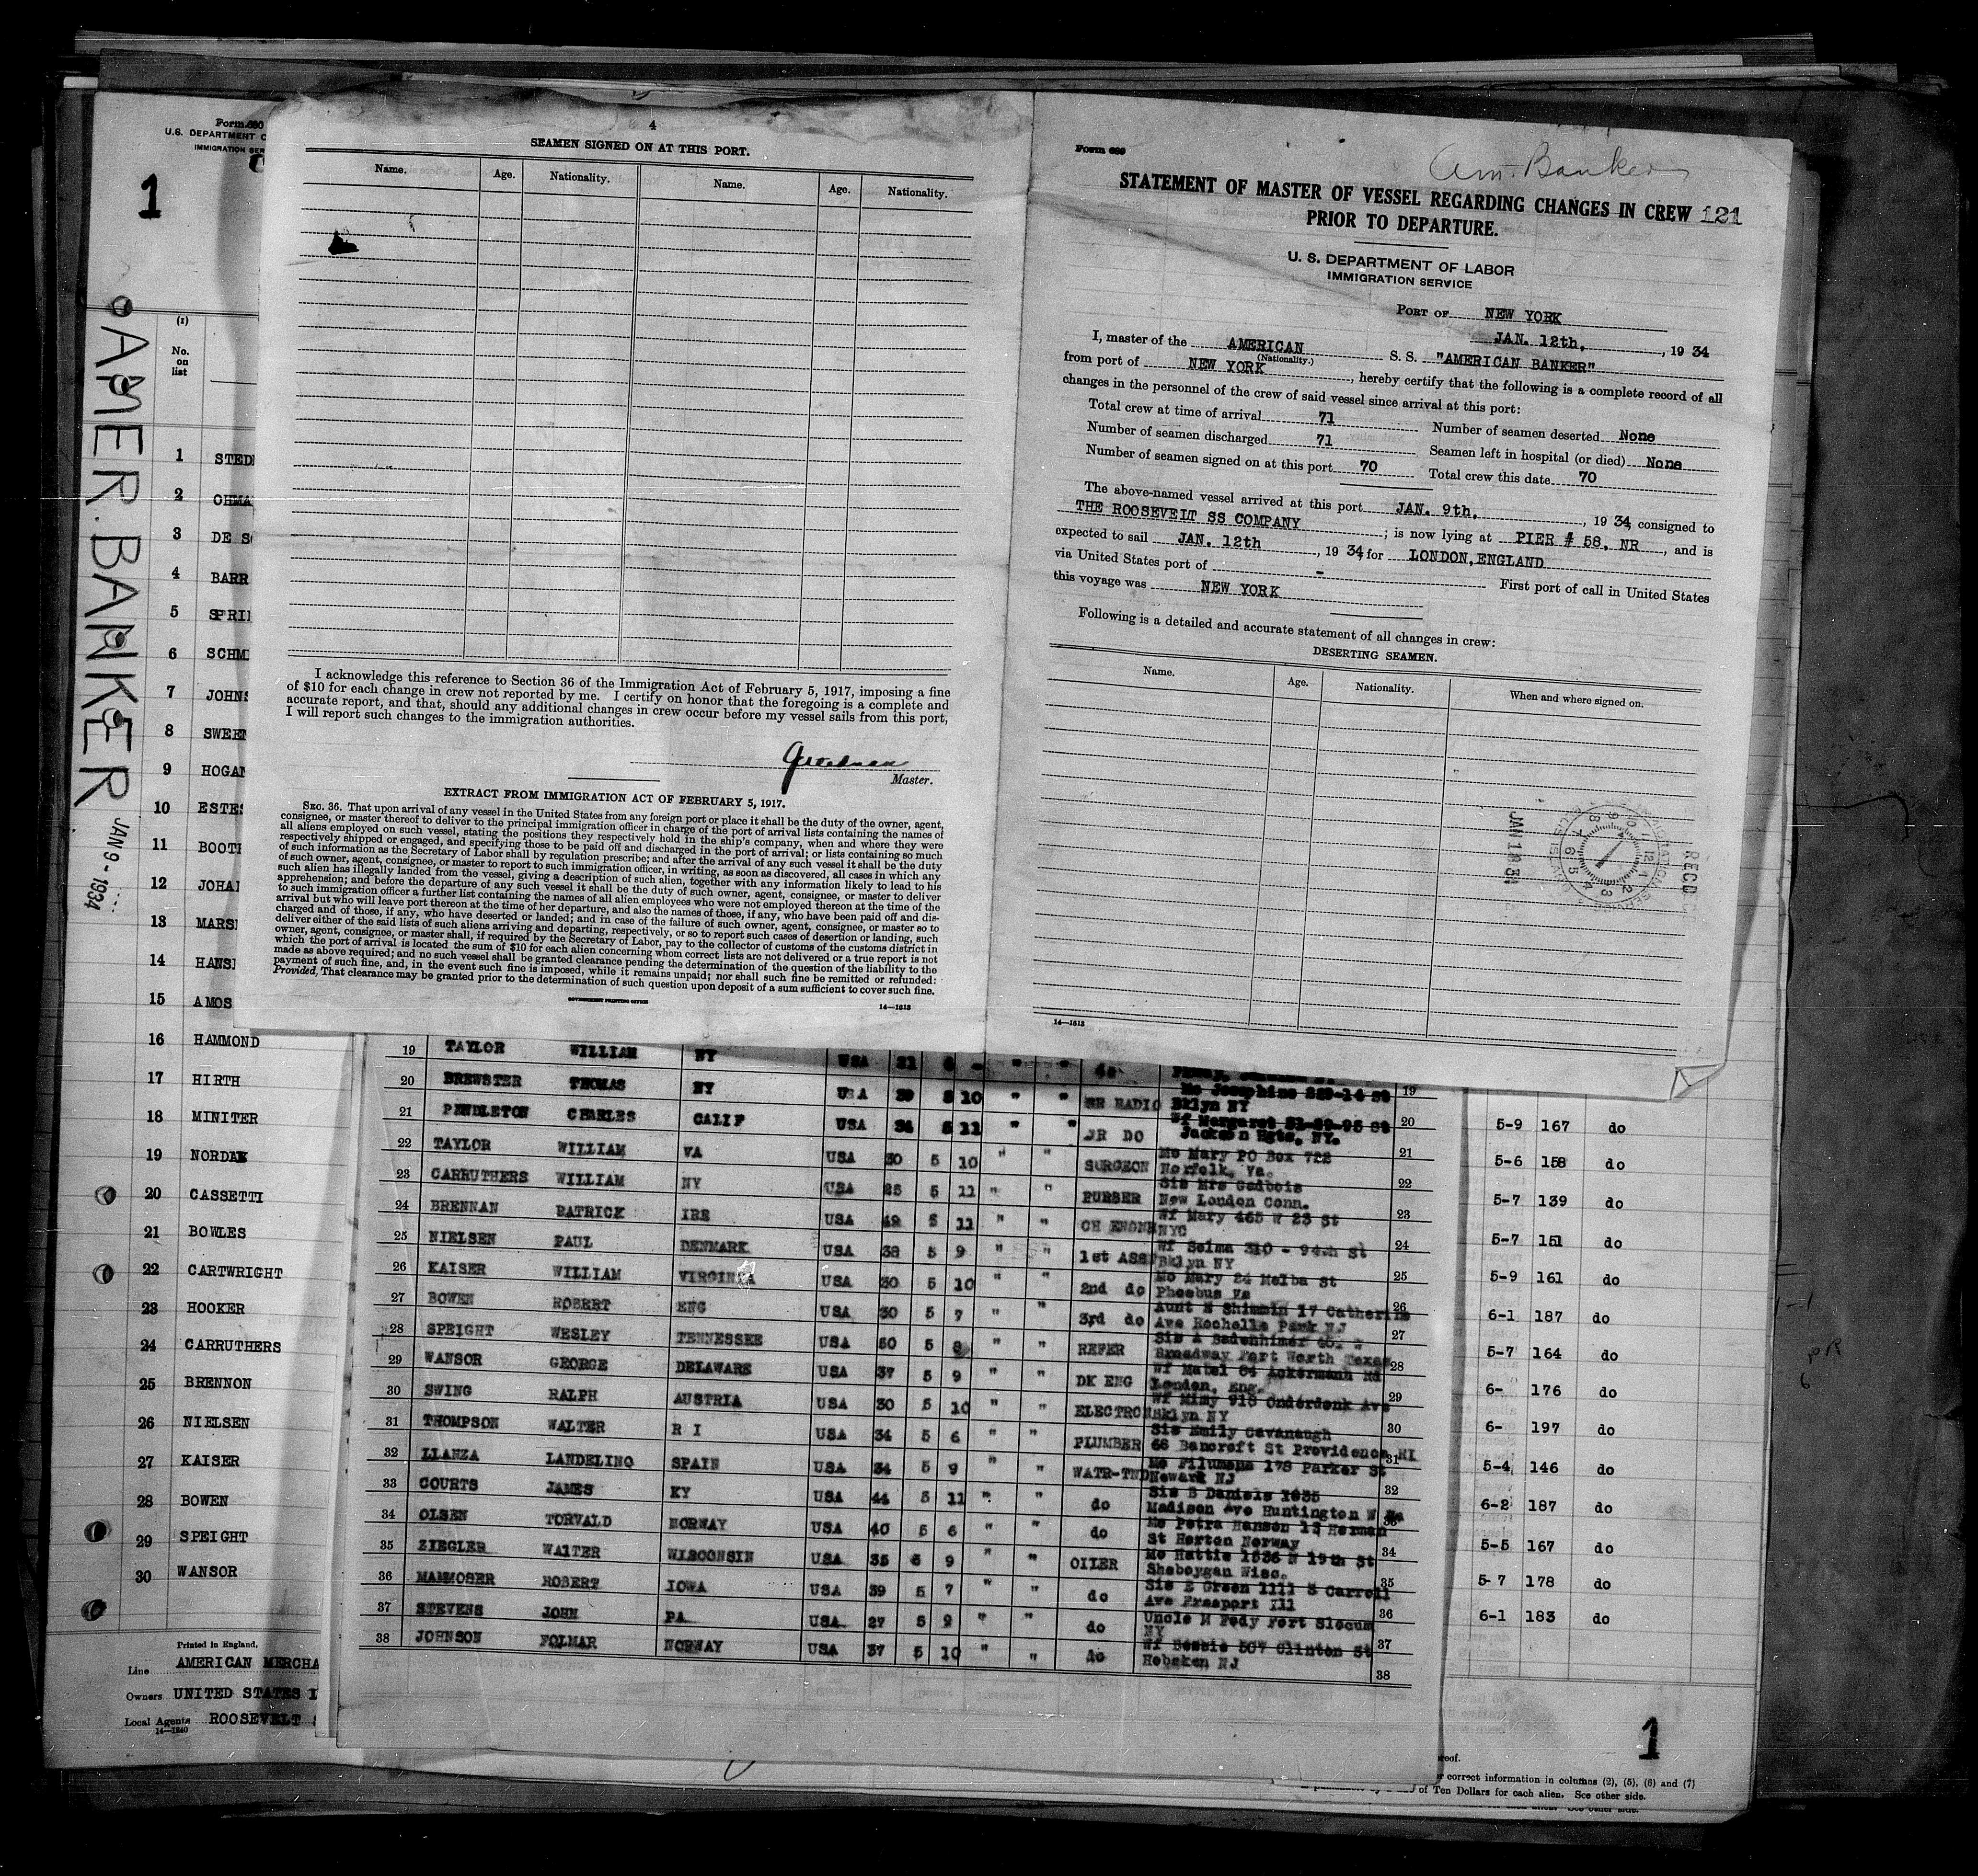 Form 680
U.S. DEPARTMENT O
IMMIGRATION SER
1
AMER. BANKER
JAN 9 - 1934
(1)
No.
on
list
1 STED
2 OHMA
3 DE S
4 BARR
5 SPRI
6 SCHM
7 JOHNS
8 SWEEN
9 HOGAN
10 ESTES
11 BOOTH
12 JOHA
13 MARS
14 HANS
15 AMOS
16 HAMMOND
17 HIRTH
18 MINITER
19 NORDAK
20 CASSETTI
21 BOWLES
22 CARTWRIGHT
23 HOOKER
24 CARRUTHERS
25 BRENNON
26 NIELSEN
27 KAISER
28 BOWEN
29 SPEIGHT
30 WANSOR
Printed in England,
Line AMERICAN MERCHA
Owners UNITED STATES
Local Agents ROOSEVELT
14—1240
4
SEAMEN SIGNED ON AT THIS PORT.
Name. Age. Nationality. Name. Age. Nationality.
I acknowledge this reference to Section 36 of the Immigration Act of February 5, 1917, imposing a fine
of $10 for each change in crew not reported by me. I certify on honor that the foregoing is a complete and
accurate report, and that, should any additional changes in crew occur before my vessel sails from this port,
I will report such changes to the immigration authorities.
Master.
EXTRACT FROM IMMIGRATION ACT OF FEBRUARY 5, 1917.
SEC. 36. That upon arrival of any vessel in the United States from any foreign port or place it shall be the duty of the owner, agent,
consignee, or master thereof to deliver to the principal immigration officer in charge of the port of arrival lists containing the names of
all aliens employed on such vessel, stating the positions they respectively hold in the ship's company, when and where they were
respectively shipped or engaged, and specifying those to be paid off and discharged in the port of arrival; or lists containing so much
of such information as the Secretary of Labor shall by regulation prescribe; and after the arrival of any such vessel it shall be the duty
of such owner, agent, consignee, or master to report to such immigration officer, in writing, as soon as discovered, all cases in which any
such alien has illegally landed from the vessel, giving a description of such alien, together with any information likely to lead to his
apprehension; and before the departure of any such vessel it shall be the duty of such owner, agent, consignee, or master to deliver
to such immigration officer a further list containing the names of all alien employees who were not employed thereon at the time of the
arrival but who will leave port thereon at the time of her departure, and also the names of those, if any, who have been paid off and dis-
charged and of those, if any, who have deserted or landed; and in case of the failure of such owner, agent, consignee, or master so to
deliver either of the said lists of such aliens arriving and departing, respectively, or so to report such cases of desertion or landing, such
owner, agent, consignee, or master shall, if required by the Secretary of Labor, pay to the collector of customs of the customs district in
which the port of arrival is located the sum of $10 for each alien concerning whom correct lists are not delivered or a true report is not
made as above required; and no such vessel shall be granted clearance pending the determination of the question of the liability to the
payment of such fine, and, in the event such fine is imposed, while it remains unpaid; nor shall such fine be remitted or refunded:
Provided, That clearance may be granted prior to the determination of such question upon deposit of a sum sufficient to cover such fine.
GOVERNMENT PRINTING OFFICE
14—1613
Form 689
Am. Banker
STATEMENT OF MASTER OF VESSEL REGARDING CHANGES IN CREW 121
PRIOR TO DEPARTURE.
U. S. DEPARTMENT OF LABOR
IMMIGRATION SERVICE
PORT OF NEW YORK
JAN. 12th. , 19 34
I, master of the AMERICAN S. S. "AMERICAN BANKER"
(Nationality.)
from port of NEW YORK , hereby certify that the following is a complete record of all
changes in the personnel of the crew of said vessel since arrival at this port:
Total crew at time of arrival 71 Number of seamen deserted None
Number of seamen discharged 71 Seamen left in hospital (or died) None
Number of seamen signed on at this port 70 Total crew this date 70
The above-named vessel arrived at this port JAN. 9th. , 19 34, consigned to
THE ROOSEVELT SS COMPANY ; is now lying at PIER # 58, NR , and is
expected to sail JAN. 12th , 19 34 for LONDON, ENGLAND
via United States port of - First port of call in United States
this voyage was NEW YORK
Following is a detailed and accurate statement of all changes in crew:
DESERTING SEAMEN.
Name. Age. Nationality. When and where signed on.
RECD
JAN 18 34
14—1613
19 TAYLOR WILLIAM NY USA 21 " " do 19
20 BREWSTER THOMAS NY USA 39 5 10 " " SR RADIO Mo Josephine 229-14 St Bklyn NY 20
21 PENDLETON CHARLES CALIF USA 34 5 11 " " JR DO Wf Margaret 31-29-95 St Jackson Hgts, NY. 21
22 TAYLOR WILLIAM VA USA 30 5 10 " " SURGEON Mo Mary PO Box 722 Norfolk, Va. 22
23 CARRUTHERS WILLIAM NY USA 25 5 11 " " PURSER Sis Mrs Gadbois New London Conn. 23
24 BRENNAN PATRICK IRE USA 49 5 11 " " CH ENGNR Wf Mary 465 W 23 St NYC 24
25 NIELSEN PAUL DENMARK USA 38 5 9 " " 1st ASST Wf Selma 310 - 94th St Bklyn NY 25
26 KAISER WILLIAM VIRGINIA USA 30 5 10 " " 2nd do Mo Mary 24 Melba St Phoebus Va 26
27 BOWEN ROBERT ENG USA 30 5 7 " " 3rd do Aunt N Shimmin 17 Catherine Ave Rochelle Park NJ 27
28 SPEIGHT WESLEY TENNESSEE USA 50 5 8 " " REFER Sis A Badenhimer Broadway Fort Worth Texas 28
29 WANSOR GEORGE DELAWARE USA 37 5 9 " " DK ENG Wf Mabel 64 Ackermann Rd London, Eng. 29
30 SWING RALPH AUSTRIA USA 30 5 10 " " ELECTRCN Wf Mimy 918 Onderdonk Ave Bklyn NY 30
31 THOMPSON WALTER R I USA 34 5 6 " " PLUMBER Sis Emily Cavanaugh 66 Bancroft St Providence RI 31
32 LLANZA LANDELINO SPAIN USA 34 5 9 " " WATR-TND Mo Filumena 178 Parker St Newark NJ 32
33 COURTS JAMES KY USA 44 5 11 " " do Sis B Daniels 1635 Madison Ave Huntington W Va 33
34 OLSEN TORVALD NORWAY USA 40 5 6 " " do Mo Petra Hansen 13 Herman St Horton Norway 34
35 ZIEGLER WALTER WISCONSIN USA 35 5 9 " " OILER Mo Hattie 1536 N 19th St Sheboygan Wisc. 35
36 MAMMOSER ROBERT IOWA USA 39 5 7 " " do Sis E Green 1111 S Carroll Ave Freeport Ill 36
37 STEVENS JOHN PA USA 27 5 9 " " do Uncle M Fedy Fort Slocum NY 37
38 JOHNSON FOLMAR NORWAY USA 37 5 10 " " do Wf Bessie 507 Clinton St Hoboken NJ 38
5-9 167 do
5-6 158 do
5-7 139 do
5-7 151 do
5-9 161 do
6-1 187 do
5-7 164 do
6- 176 do
6- 197 do
5-4 146 do
6-2 187 do
5-5 167 do
5-7 178 do
6-1 183 do
1
reof.
r correct information in columns (2), (5), (6) and (7)
of Ten Dollars for each alien. See other side.